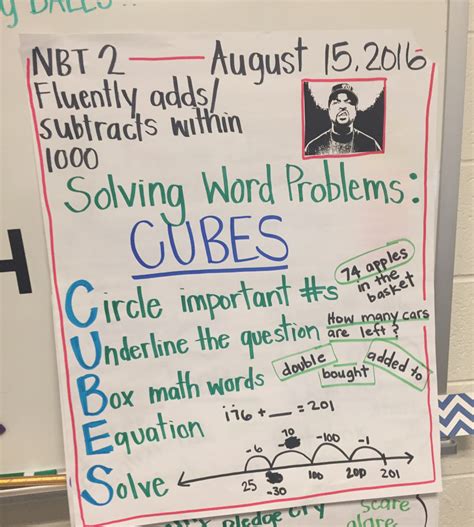 NBT 2 — August 15, 2016
Fluently adds/
subtracts within
1000
Solving Word Problems:
CUBES
Circle important #s
74 apples
in the
basket
Underline the question
How many cars
are left?
Box math words
double
bought
added to
Equation
176 + __ = 201
Solve
-6
70
-100
-1
25
-30
100
200
201
pledge
Scare